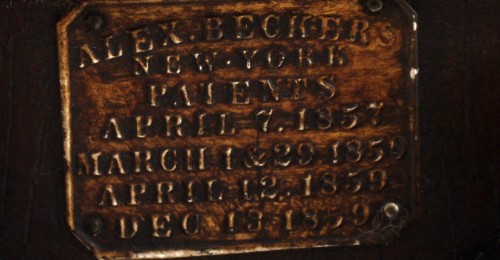 ALEX. BECKERS
NEW-YORK
PATENTS
APRIL 7. 1857
MARCH 1 & 29 1859
APRIL 12. 1859
DEC 13 1859